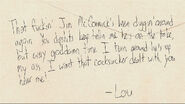 That fuckin' Jim McCormick's been diggin around
again. You dipshits keep tellin me he's off the take,
but every goddamn time I turn around he's up
my ass. I want that cocksucker dealt with you
hear me!
- Lou